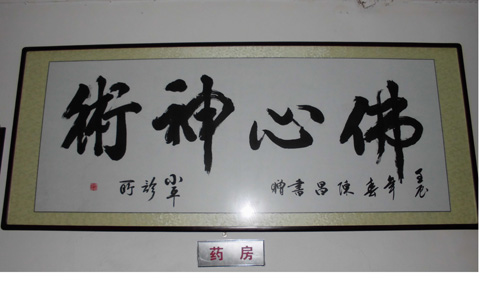 佛心神術
陳昌書贈
小平診所
药房